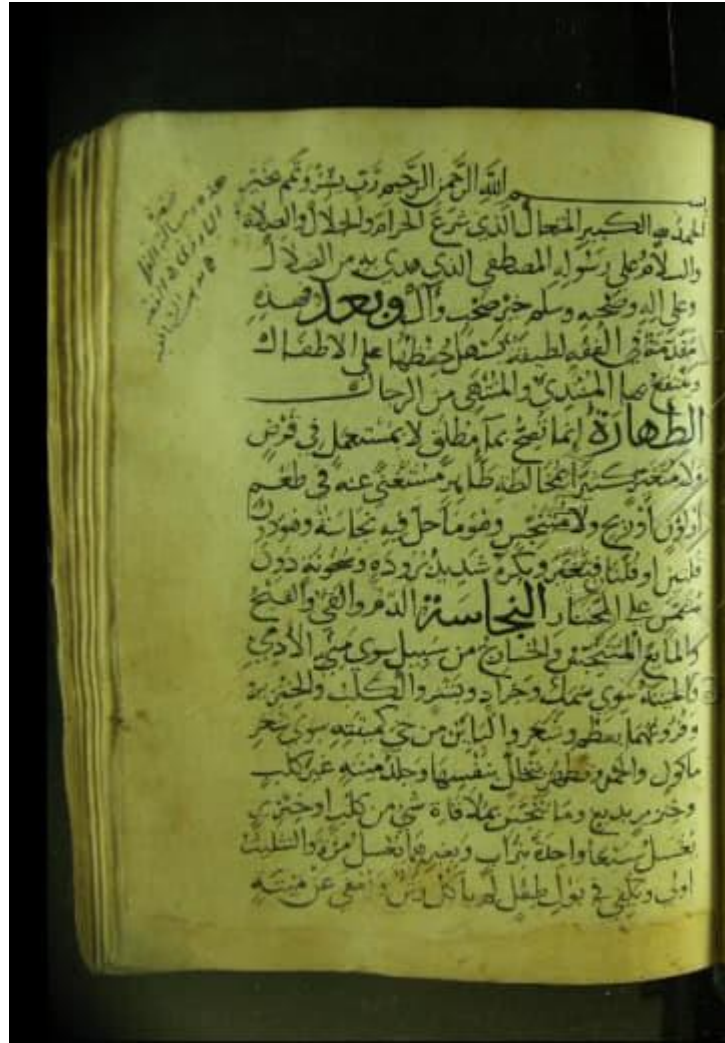 بسم الله الرحمن الرحيم رب يسر وتمم بخير
الحمد لله الكبير المتعال الذي شرع الحرام والحلال والصلاة
والسلام على رسوله المصطفى الذي هدى به من الضلال
وعلى اله وصحبه وسلم خير صحب وآل وبعد فهذه
مقدمة في الفقه لطيفة يسهل حفظها على الاطفال
وينتفع بها المبتدي والمنتهي من الرجال
الطهارة إنما تصح بماء مطلق لا بمستعمل في فرض
ولا متغير كثيرا بمخالطه طاهر مستغنى عنه في طعم
أولون أو ريح ولا متنجس وهو ما حل فيه نجاسة وهو دون
قلتين او قلتان فتغير ويكره شديد برودة وسخونة دون
متشمس على المختار النجاسة الدم والقي والقيح
كالمايع والخارج من سبيل سوى مني الآدمي
كالميتة سوى سمك وجراد وبشر والكلب والخنزير
وفروعهما بعظم وشعر والباين من حي كميتته سوى شعر
ماكول والخمر وتطهر بتخلل بنفسها وجلد ميتة غير كلب
وخنزير بدبغ وما تنجس بملاقاة شي من كلب او خنزير
يغسل سبعا واحدة بتراب وبغيرهما يغسل مرة والتثليث
اولى ويكفي في بول طفل لم ياكل رش وعفي عن ميتة
هذه